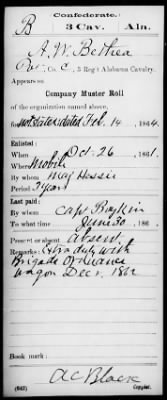 Confederate.
B 3 Cav. Ala.
A. W. Bethea
Pvt, Co. C, 3 Reg't Alabama Cavalry.
Appears on
Company Muster Roll
of the organization named above,
for not stated dated Feb. 14, 1864.
Enlisted:
When Oct. 26, 1861.
Where Mobile
By whom Maj Hessee
Period 3 years
Last paid:
By whom Capt Boykin
To what time June 30, 186
Present or absent Absent
Remarks: Extra duty with
Brigade Ordnance
wagon Dec 1. 1862
Book mark:
A C Black
(642) Copyist.